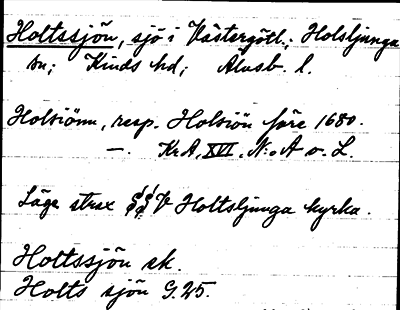 Holtssjön, sjö i Västergötl.; Holsljunga
sn; Kinds hd; Älvsb. l.
Holsiönn, resp. Holsiön före 1680.
—. KrA, XVI. N:o A o. L.
Läge strax V Holtsljunga kyrka.
Holtssjön ek.
Holts sjön G.25.